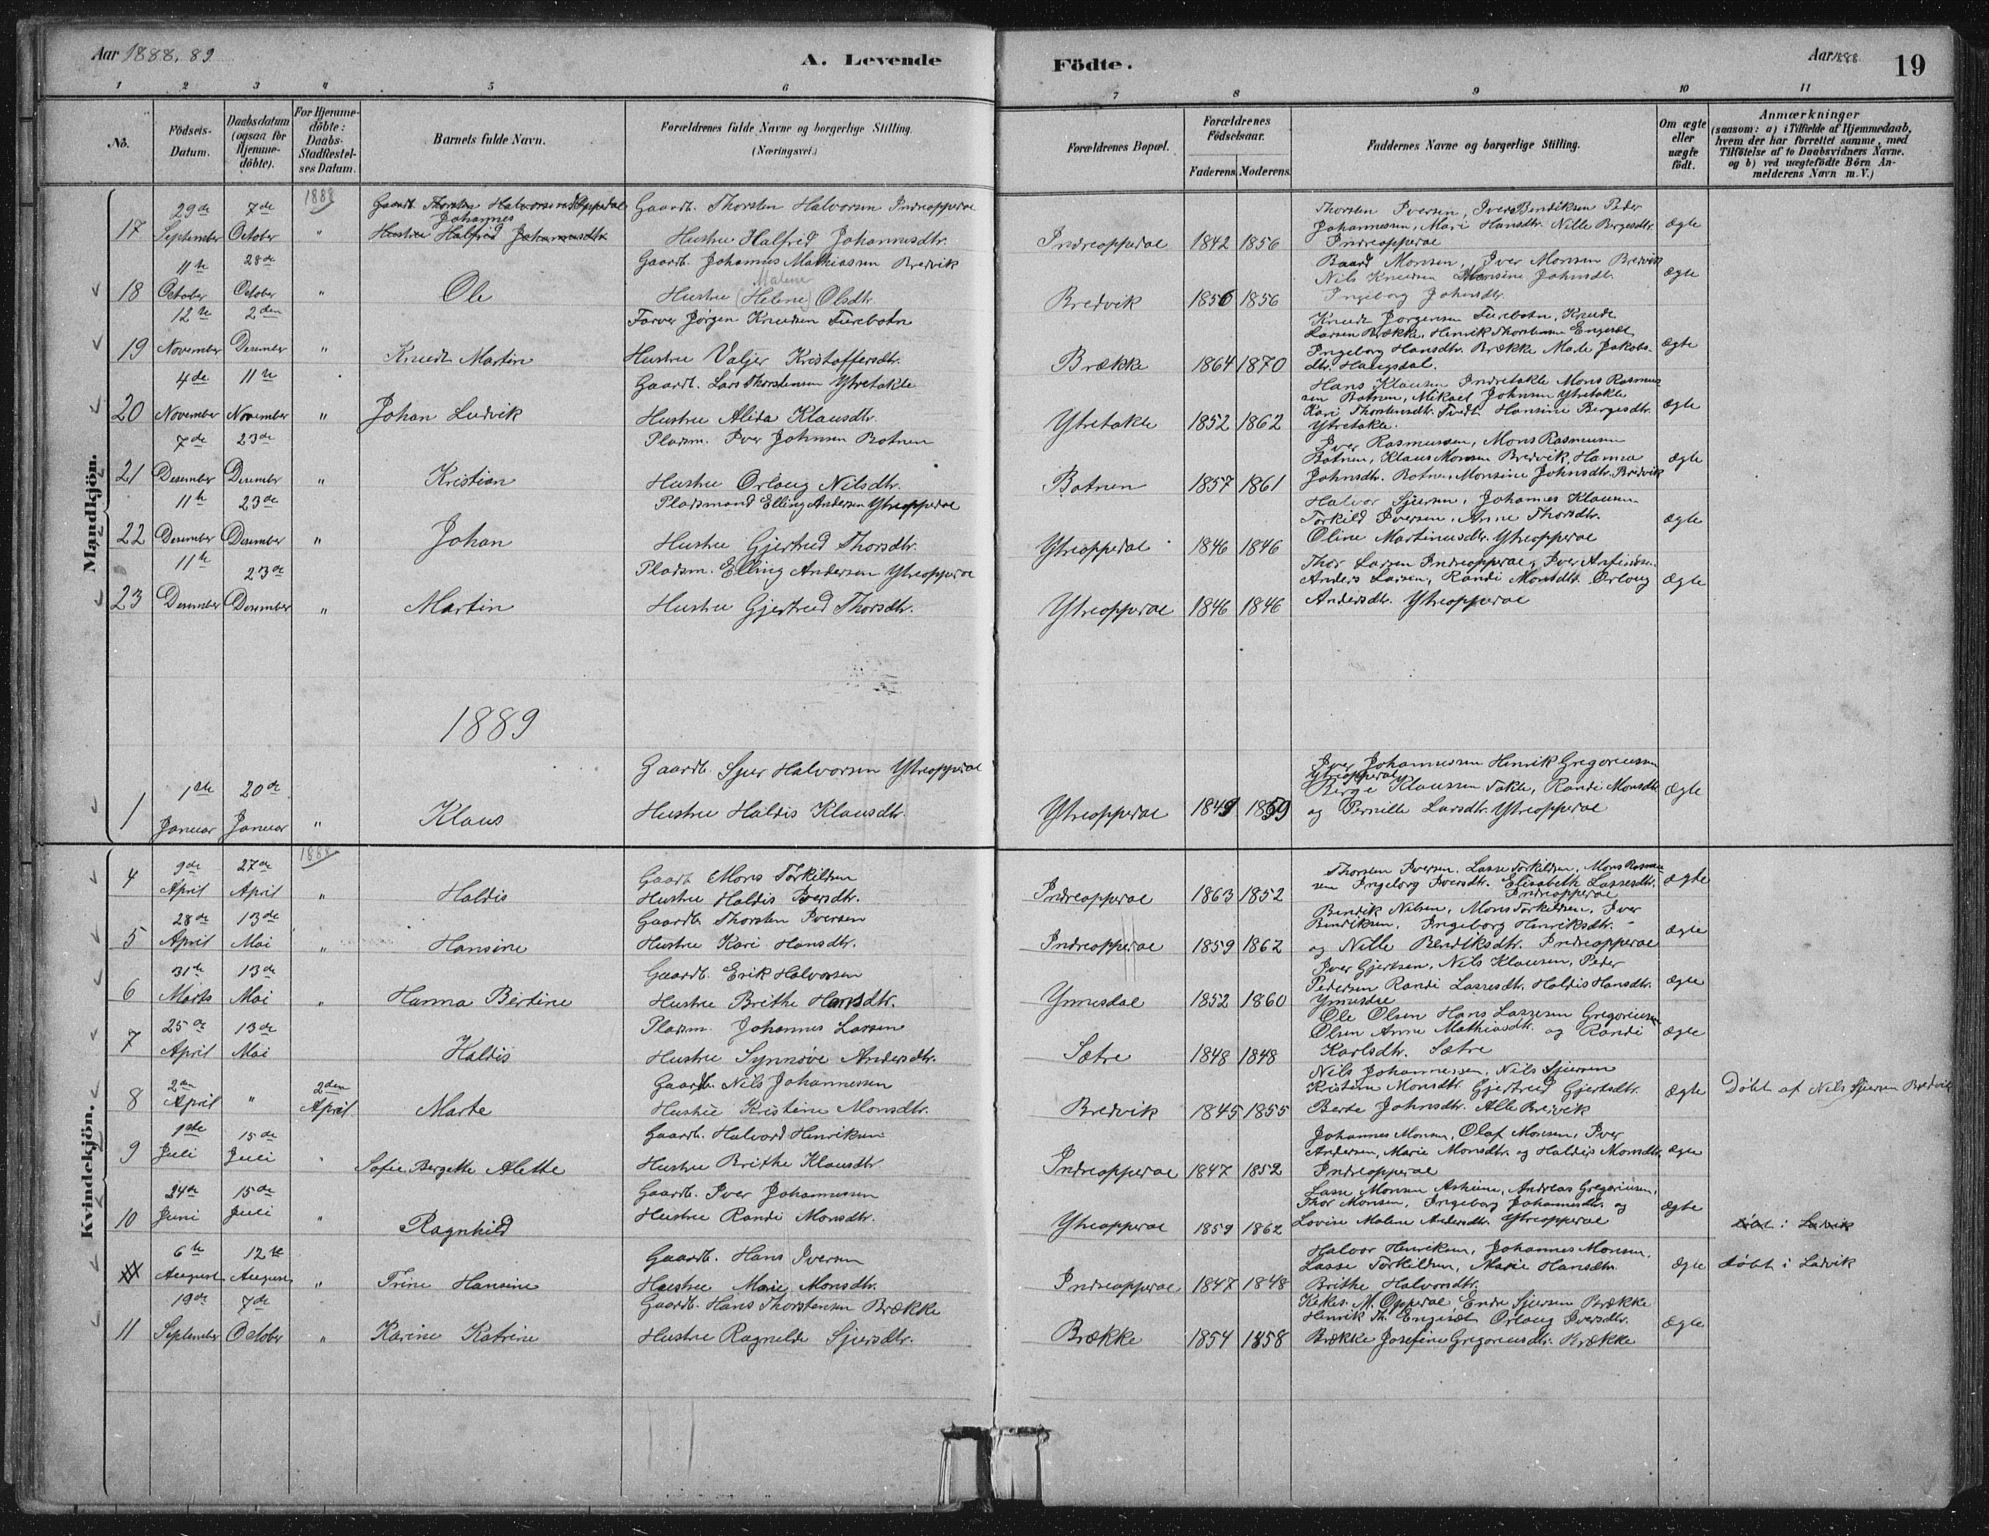 Aar 1888, 89
A. Levende
Födte.
Aar 1888
19
1 2 3 4 5 6 7 8 9 10 11
No.
Födsels-Datum.
Daabsdatum (ogsaa for Hjemme-döbte).
For Hjemme-döbte: Daabs-Stadfestel-ses Datum.
Barnets fulde Navn.
Forældrenes fulde Navne og borgerlige Stilling. (Næringsvei.)
Forældrenes Bopæl.
Forældrenes Födselsaar.
Faderens. Moderens.
Faddernes Navne og borgerlige Stilling.
Om ægte eller uægte födt.
Anmærkninger
(saasom: a) i Tilfælde af Hjemmedaab, hvem der har forrettet samme, med Tilföielse af to Daabsvidners Navne. og b) ved uægtefödte Börn An-melderens Navn m. V.)
Mandkjön.
1888
17 29de September 7de October " Gaardb. Thorsten Halvorsen Indreoppedal
Johannes
Hustru Halfrid Johannesdtr.
Gaardb. Thorsten Halvorsen Indreoppedal
Hustru Halfrid Johannesdtr.
Indreoppedal 1842 1856
Thorsten Iversen, Iver Bendiksen Peder
Johannessen, Mari Hansdtr. Nille Bergesdtr.
Indreoppedal
ægte
18 11te October 28de October " Ole
Gaardb. Johannes Mathiassen Bredvik
Malene
Hustru (Helene) Olsdtr.
Bredvik 1856 1856
Baard Monsen, Iver Monsen Bredvik
Nils Knudsen Monsine Johnsdtr.
Ingeborg Johnsdtr.
ægte
19 12te November 2den Desember " Knudt Martin
Farver Jörgen Knudsen Furebotn
Hustru Valjer Kristoffersdtr.
Brække 1864 1870
Knudt Jorgensen Furebotn, Knudt
Larsen Brække, Henrik Thorstensen Engesæt
Ingeborg Hansdtr. Brække Made Jakobs-
dtr. Haugsdal.
ægte
20 4de November 11te November " Johan Ludvik
Gaardb. Lars Thorstensen Ytretakle
Hustru Alida Klausdtr.
Ytretakle 1852 1862
Hans Klausen Indretakle Mons Rasmus
sen Botnen, Mikael Johnsen Ytretakle
Kari Thorstensdtr. Tvedt Hansine Bergesdtr.
Ytretakle.
ægte
21 7de Desember 23de Desember " Kristian
Pladsm. Iver Johnsen Botnen
Hustru Orloug Nilsdtr.
Botnen 1857 1861
Iver Rasmussen, Mons Rasmussen
Botnen, Klaus Monsen Bredvik, Hanna
Johnsdtr. Botnen Monsine Johnsdtr. Bredvik
ægte
22 11te Desember 23de Desember " Johan
Pladsmand Elling Andersen Ytreoppedal
Hustru Gjertrud Thorsdtr.
Ytreoppedal 1846 1846
Halvor Sjursen, Johannes Klausen
Torkild Iversen, Anne Thorsdtr.
Oline Martinusdtr. Ytreoppedal
ægte
23 11te Desember 23de Desember " Martin
Pladsm. Elling Andersen Ytreoppedal
Hustru Gjertrud Thorsdtr.
Ytreoppedal 1846 1846
Thor Larsen Indreoppedal, Iver Anfindsen
Anders Larsen, Randi Monsdtr. Orloug
Andersdtr. Ytreoppedal
ægte
1889
1 1ste Januar 20de Januar " Klaus
Gaardb. Sjur Halvorsen Ytreoppedal
Hustru Haldis Klausdtr.
Ytreoppedal 1849 1859
Iver Johannessen Henrik Gregoriussen
Ytreoppedal
Berge Klaussen Takle, Randi Monsdtr.
og Pernille Larsdtr. Ytreoppedal
ægte
Kvindekjön.
1888
4 9de April 27de April " Haldis
Gaardb. Mons Torkildsen
Hustru Haldis Iversdtr.
Indreoppedal 1863 1852
Thorsten Iversen, Lasse Torkildsen, Mons Rasmus
sen Ingeborg Iversdtr. Elisabeth Lassesdtr.
Indreoppedal
ægte
5 28de April 13de Mai " Hansine
Gaardb. Thorsten Iversen
Hustru Kari Hansdtr.
Indreoppedal 1859 1862
Bendik Nilsen, Mons Torkildsen, Iver
Bendiksen, Ingeborg Henriksdtr.
og Nille Bendiksdtr. Indreoppedal
ægte
6 31te Marts 13de Mai " Hanna Bertine
Gaardb. Erik Halvorsen
Hustru Brithe Hansdtr.
Ynnesdal 1852 1860
Iver Gjertsen, Nils Klausen, Peder
Pedersen Randi Lassesdtr. Haldis Hansdtr.
Ynnesdal
ægte
7 25de April 13de Mai Haldis
Pladsm. Johannes Larsen
Hustru Synnöve Andersdtr.
Sætre 1848 1848
Ole Olsen Hans Lassesen Gregoriusen
Olsen Anne Mathiasdtr. og Randi
Karlsdtr. Sætre
ægte
8 2den April " 2den April Marte
Gaardb. Nils Johannessen
Hustru Kristine Monsdtr.
Bredvik 1845 1855
Nils Johannessen, Nils Sjursen
Kristine Monsdtr. Gjertrud Gjertsdtr.
Berte Johnsdtr. Alle Bredvik
ægte
Döbt af Nils Sjursen Bredvik
9 1ste Juli 15de Juli " Sofie Bergette Alette
Gaardb. Halvord Henriksen
Hustru Brithe Klausdtr.
Indreoppedal 1847 1852
Johannes Monsen, Olaf Monsen, Iver
Andersen, Marie Monsdtr. og Haldis Monsdtr.
Indreoppedal
ægte
10 24de Juni 15de Juli " Ragnhild
Gaardb. Iver Johannessen
Hustru Randi Monsdtr.
Ytreoppedal 1859 1862
Lasse Monsen Asheim, Andreas Gregoriusen,
Thor Monsen, Ingeborg Johannesdtr. og
Lovise Malene Andersdtr. Ytreoppedal
ægte
döbt i Ladvik
6te August 12te August " Trine Hansine
Gaardb. Hans Iversen
Hustru Marie Monsdtr.
Indreoppedal 1847 1848
Halvor Henriksen, Johannes Monsen,
Lasse Torkildsen, Marie Hansdtr.
Brithe Halvorsdtr.
ægte
döbt i Ladvik
11 19de September 7de October " Karine Katrine
Gaardb. Hans Thorstensen Brække
Hustru Ragnilde Sjursdtr.
Brække 1854 1858
M. Oppedal, Endre Sjursen Brække
Henrik Th. Engesæt Orloug Iversdtr.
Brække Josefine Gregoriusdtr. Brække
ægte